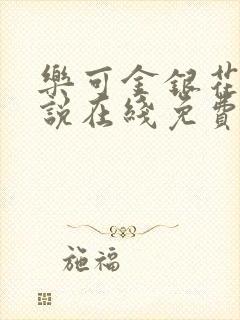 樂可金銀花
說在綫免費
施福